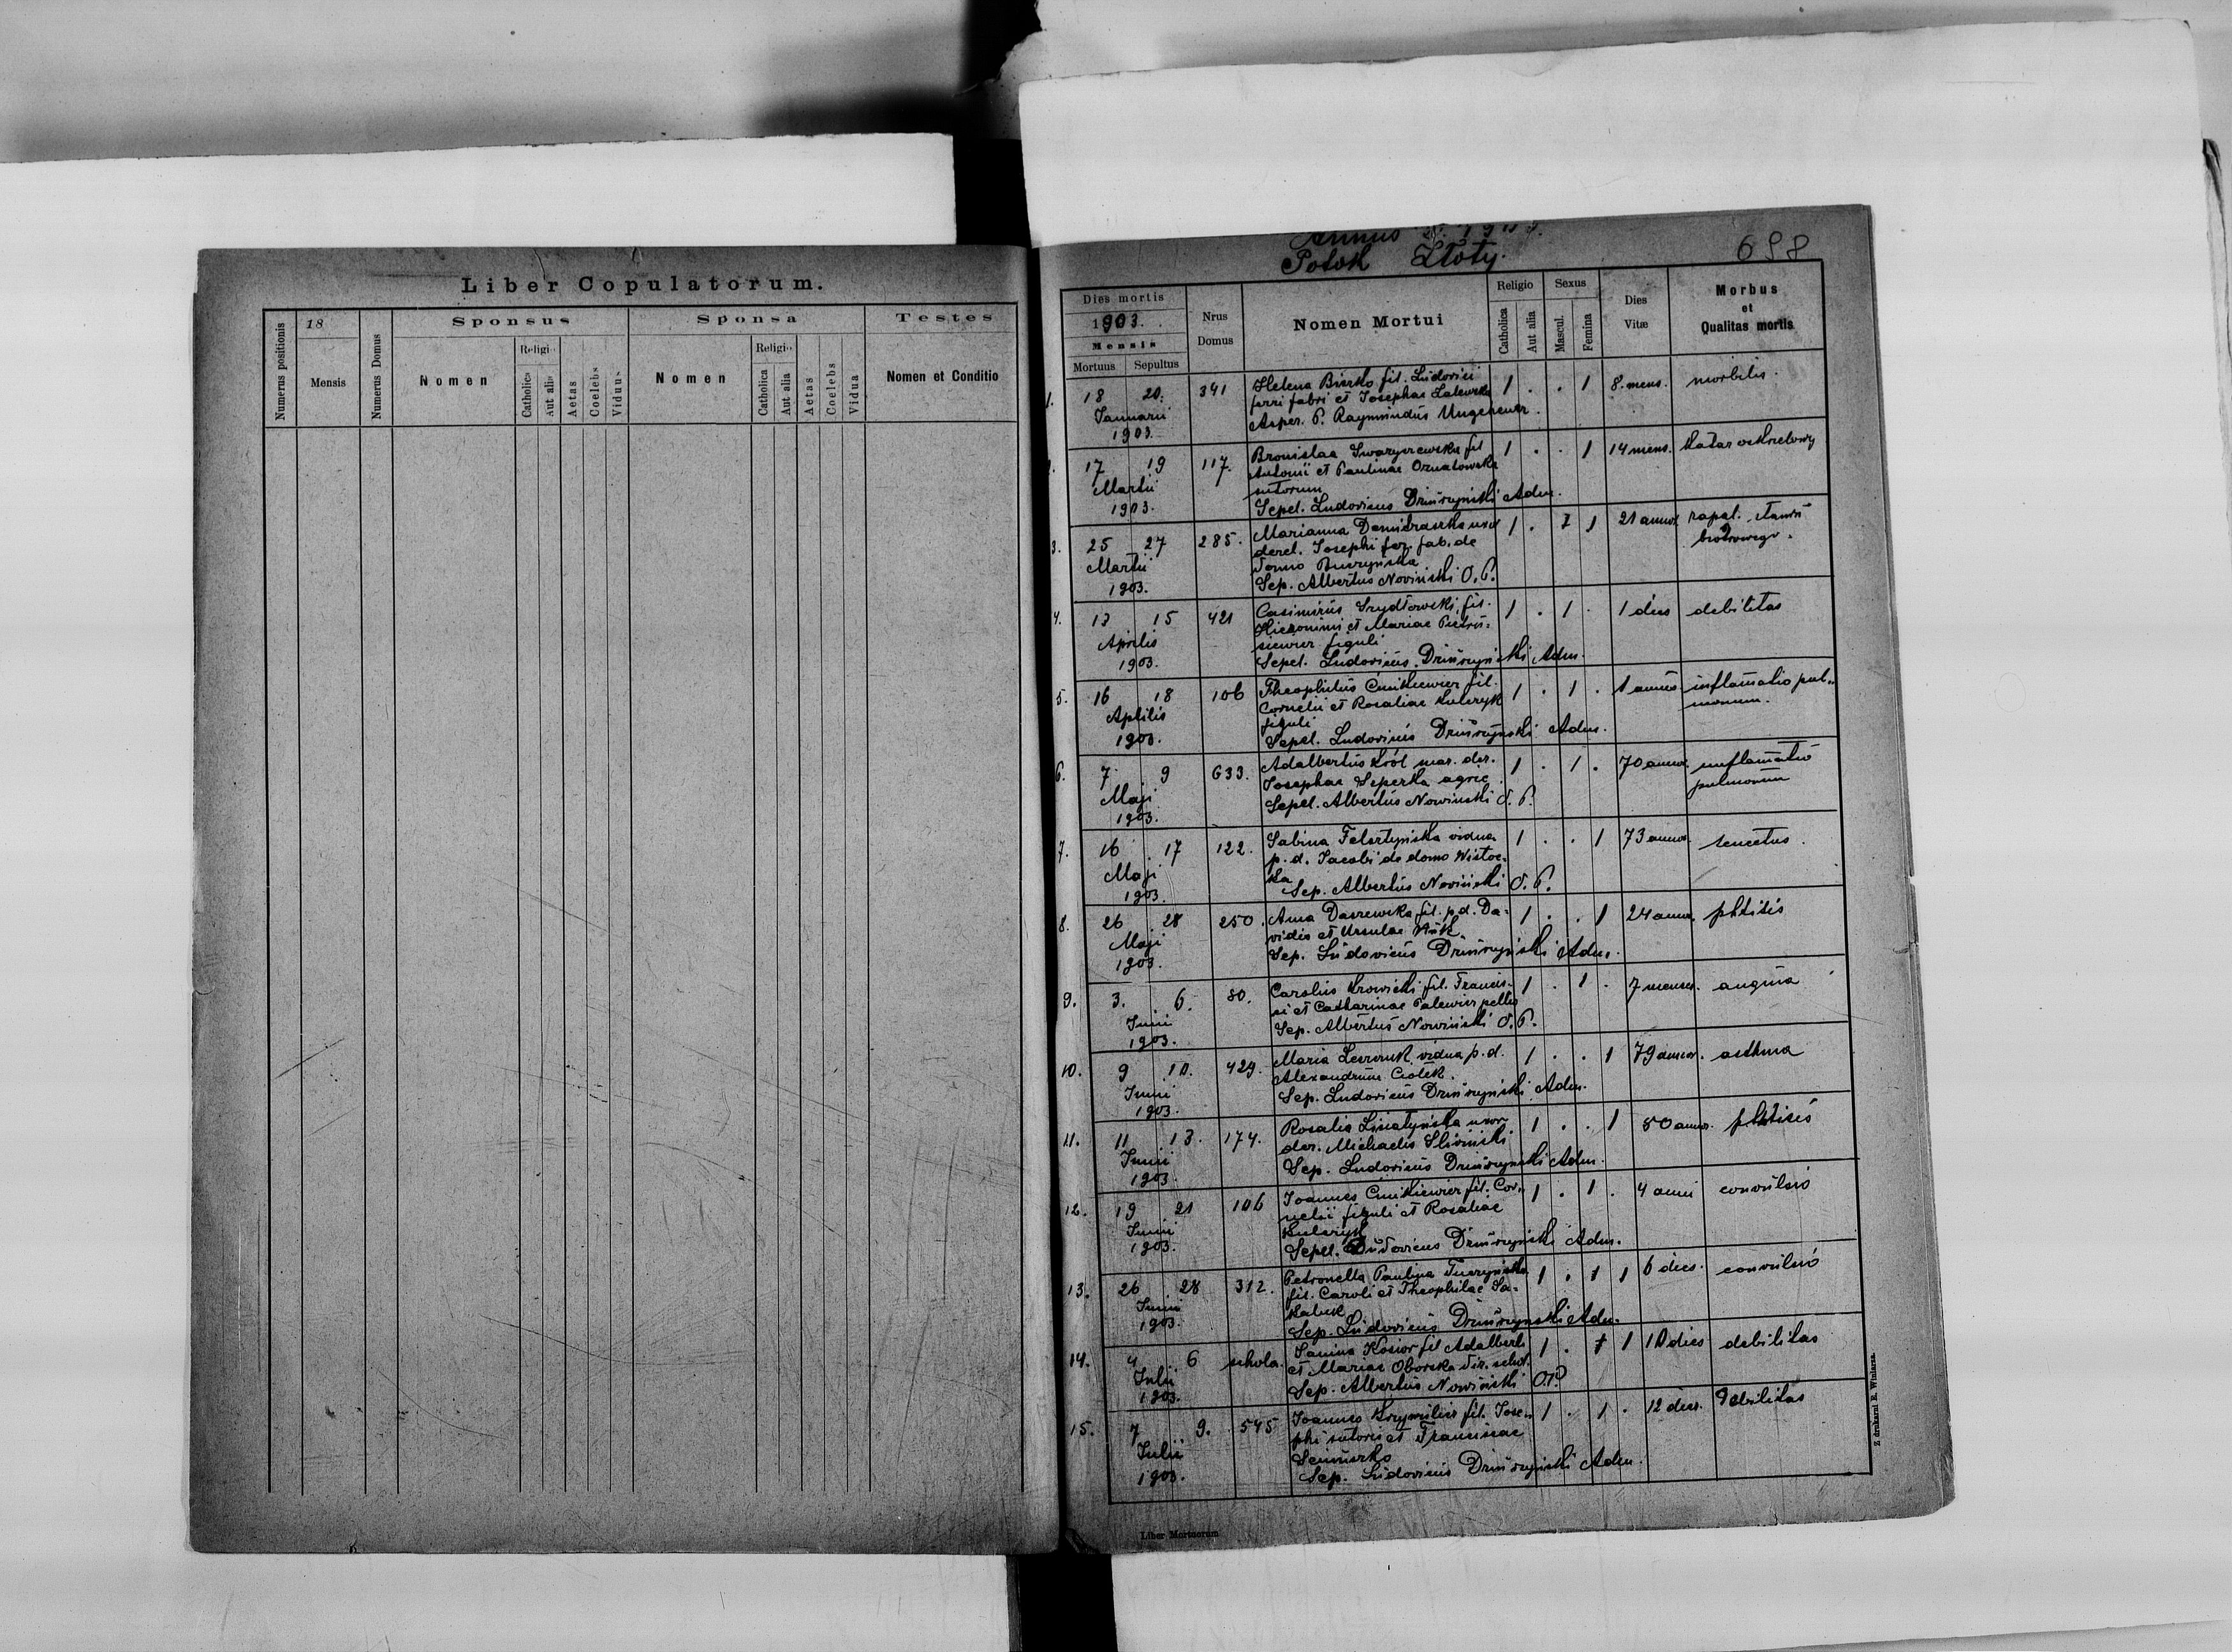 Liber Copulatorum.
Numerus positionis
18
Mensis
Numerus Domus
Sponsus
Nomen
Religio
Catholica
Aut alia
Aetas
Coelebs
Viduus
Sponsa
Nomen
Religio
Catholica
Aut alia
Aetas
Coelebs
Vidua
Testes
Nomen et Conditio
Annus 1903.
Potok Złoty.
698
Dies mortis
1903.
Mensis
Mortuus Sepultus
Nrus
Domus
Nomen Mortui
Religio
Catholica
Aut alia
Sexus
Mascul.
Femina
Dies
Vitæ
Morbus
et
Qualitas mortis
1. 18 20. 341 Helena fil. Ludovici 1 . . 1 8. mens. morbilis.
Januarii ferri fabri et Josephae
1903. Asper. P. Raymundus Ungeheuer.
2. 17 19 117. Bronislaa fil 1 . . 1 14 mens. Katar oskrzelowy
Martii Antonii et Paulinae
1903. sutorum
Sepel. Ludovicus Adm.
3. 25 27 285. Marianna 1 . 1 21 annor. zapal.
Martii derel. Josephi fer. fab. de
1903. domo
Sep. Albertus Nowiński O. P.
4. 13 15 421 Casimirus Szydłowski, fil. 1 . 1 . 1 dies debilitas
Aprilis et Mariae Pietru-
1903. siewicz figuli
Sepel. Ludovicus Adm.
5. 16 18 106 Theophilus Ćmikiewicz fil. 1 . 1 . 1 annus inflamatio pul-
Aprilis Cornelii et Rosaliae Kulczyk monum.
1903. figuli
Sepel. Ludovicus Adm.
6. 7 9 633. Adalbertus Król mar. der. 1 . 1 . 70 annor. inflamatio
Maji Josephae agric. pulmonum
1903. Sepel. Albertus Nowinski O. P.
7. 16 17 122. Sabina Felsztyńska vidua 1 . . 1 73 annor. senectus.
Maji p. d. Jacobi de domo Wisłoc-
1903. ka
Sep. Albertus Nowiński O. P.
8. 26 28 250. Anna Daszewska fil. p. d. Da- 1 . . 1 24 annor. phtisis
Maji vidis et Ursulae
1903. Sep. Ludovicus Adm.
9. 3. 6. 80. Carolus Krowicki fil. Francis- 1 . 1 . 7 menses. angina
Junii ci et Catharinae
1903. Sep. Albertus Nowiński O. P.
10. 9 10. 429. Maria vidua p. d. 1 . . 1 79 annor. asthma
Junii Alexandrum Ciołek.
1903. Sep. Ludovicus Adm.
11. 11 13. 174. Rosalia uxor 1 . . 1 80 annor. phtisis
Junii der. Michaelis Śliwiński
1903. Sep. Ludovicus Adm.
12. 19 21 106 Joannes Ćmikiewicz fil. Cor- 1 . 1 . 4 anni convulsio
Junii nelii figuli et Rosaliae
1903. Kulczyk
Sepel. Ludovicus Adm.
13. 26 28 312. Petronella Paulina 1 . 1 1 6 dies. convulsio
Junii fil. Caroli et Theophilae
1903.
Sep. Ludovicus Adm.
14. 4 6 schola. Janina Kosior fil Adalberti 1 . 1 10 dies debilitas
Julii et Mariae Oborska dir. schol.
1903. Sep. Albertus Nowiński O.P.
15. 7 9. 545 Joannes fil. Jose- 1 . 1 . 12 dies. debilitas
Julii phi sutoris et Franciscae
1903.
Sep. Ludovicus Adm.
Liber Mortuorum
Z drukarni R. Winiarza.